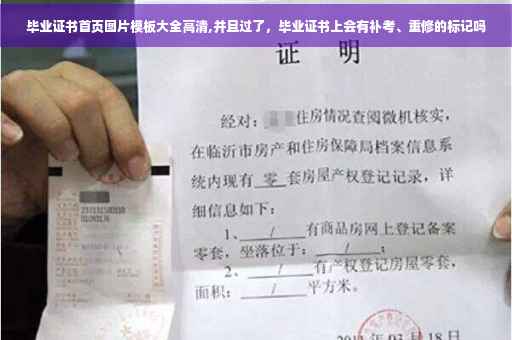 毕业证书首页图片模板大全高清,并且过了，毕业证书上会有补考、重修的标记吗
证 明
经对：住房情况查阅微机核实，
在临沂市房产和住房保障局档案信息系
统内现有 零 套房屋产权登记记录，详
细信息如下：
1、 / 有商品房网上登记备案
零套，坐落位于： / ；
2、 / 有产权登记房屋零套，
面积： / 平方米。